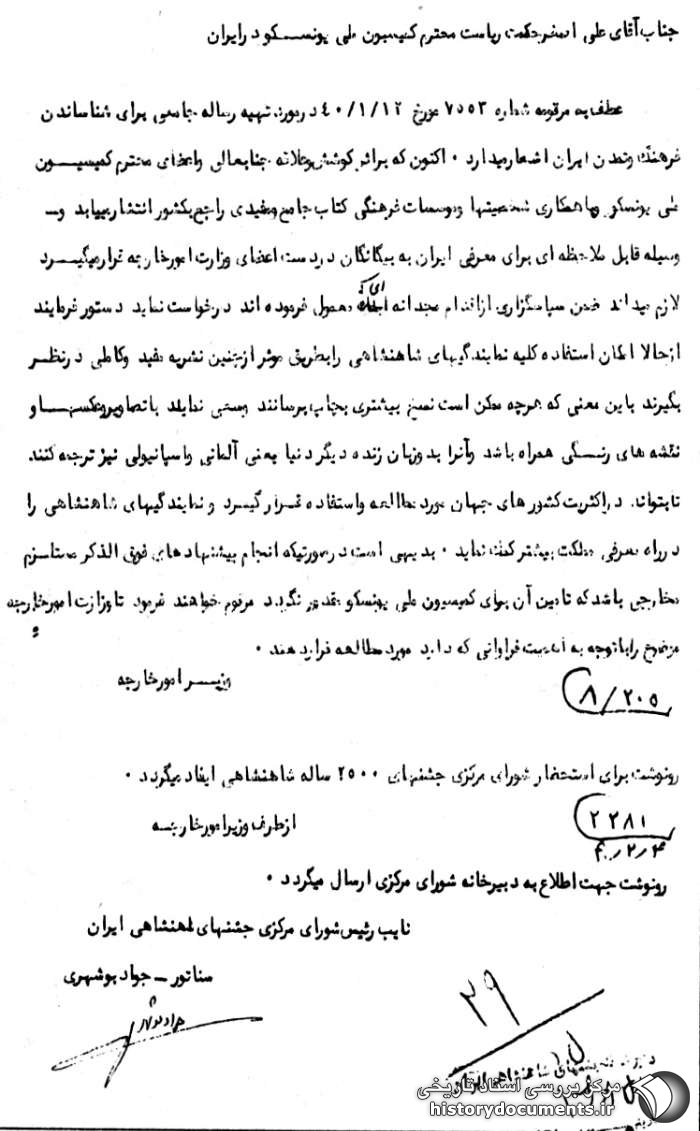 جناب آقای علی اصغر حکمت ریاست محترم کمیسیون ملی یونسکو در ایران
عطف به مرقومه شماره ۷۵۵۳ مورخ ۴۰/۱/۱۲ در مورد تهیه رساله جامعی برای شناساندن
فرهنگ و تمدن ایران اشعار میدارد ۰ اکنون که براثر کوشش و علاقه جنابعالی و اعضای محترم کمیسیون
ملی یونسکو و با همکاری شخصیتها و موسسات فرهنگی کتاب جامع و مفیدی راجع بکشور انتشار مییابد و
وسیله قابل ملاحظه ای برای معرفی ایران به بیگانگان در دست اعضای وزارت امور خارجه قرار میگیرد
لازم میداند ضمن سپاسگزاری از اقدام مجدانه ای که معمول فرموده اند درخواست نماید دستور فرمایند
از حالا امکان استفاده کلیه نمایندگیهای شاهنشاهی را بطریق موثر از چنین نشریه مفید و کاملی در نظر
بگیرند باین معنی که هرچه ممکن است نسخ بیشتری بچاپ برسانند وسعی نمایند با تصاویر و عکسها و
نقشه های رنگی همراه باشد و آنرا بدو زبان زنده دیگر دنیا یعنی آلمانی و اسپانیولی نیز ترجمه کنند
تا بتواند در اکثریت کشور های جهان مورد مطالعه و استفاده قرار گیرد و نمایندگیهای شاهنشاهی را
در راه معرفی مملکت بیشتر کمک نماید ۰ بدیهی است در صورتیکه انجام پیشنهادهای فوق الذکر مستلزم
مخارجی باشد که تامین آن برای کمیسیون ملی یونسکو مقدور نگردد مرقوم خواهند فرمود تا وزارت امور خارجه
موضوع را با توجه به اهمیت فراوانی که دارد مورد مطالعه قرار دهند ۰
وزیر امور خارجه
۸/۲۰۵
رونوشت برای استحضار شورای مرکزی جشنهای ۲۵۰۰ ساله شاهنشاهی ایفاد میگردد ۰
از طرف وزیر امور خارجه
۲۲۸۱
۴۰/۲/۴
رونوشت جهت اطلاع به دبیرخانه شورای مرکزی ارسال میگردد ۰
نایب رئیس شورای مرکزی جشنهای شاهنشاهی ایران
سناتور - جواد بوشهری
جواد بوشهری
۲۹
مرکز بررسی اسناد تاریخی
historydocuments.ir